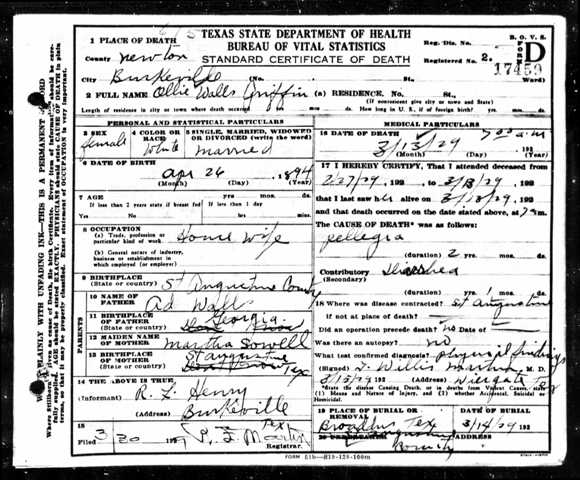 TEXAS STATE DEPARTMENT OF HEALTH
BUREAU OF VITAL STATISTICS
STANDARD CERTIFICATE OF DEATH
B. O. V. S. Form
D
17459
1 PLACE OF DEATH
Reg. Dis. No.
County newton
Registered No. 2
City Burkeville (No. St., Ward)
2 FULL NAME Ollie Walls Griffin (a) RESIDENCE. No. St.
(If nonresident give city or town and State)
Length of residence in city or town where death occurred yrs. mos. ds. How long in U. S., if of foreign birth? yrs. mos. ds.
PERSONAL AND STATISTICAL PARTICULARS
3 SEX female
4 COLOR OR RACE White
5 SINGLE, MARRIED, WIDOWED OR DIVORCED (write the word) married
6 DATE OF BIRTH
apr 26 1894
(Month) (Day) (Year)
7 AGE yrs. mos. ds.
If less than 2 years state if breast fed If less than 1 day
Yes No hrs. min.
8 OCCUPATION
(a) Trade, profession or particular kind of work. House Wife
(b) General nature of industry, business or establishment in which employed (or employer)
9 BIRTHPLACE St Augustine County
(State or country)
10 NAME OF FATHER Ad Walls
11 BIRTHPLACE OF FATHER Georgia
(State or country)
12 MAIDEN NAME OF MOTHER Martha Sowell
13 BIRTHPLACE OF MOTHER St augustine
(State or country) Tex
PARENTS
14 THE ABOVE IS TRUE.
(Informant) R. L. Henry
(Address) Burkeville
Tex
15
Filed 3 20 Registrar.
MEDICAL PARTICULARS
16 DATE OF DEATH
3/13/29 192
(Month) (Day) (Year)
17 I HERBY CERTIFY, That I attended deceased
from 2/27/29, 192 to 3/13/29, 192
that I last saw her alive on 3/13/29, 192
and that death occurred on the date stated above, at 7 m.
The CAUSE OF DEATH* was as follows:
pellegra
(duration) 2 yrs. mos. ds.
Contributory
(Secondary)
(duration) yrs. 1 mos. ds.
18 Where was disease contracted? St Augustine
if not at place of death?
Did an operation precede death? no Date of
Was there an autopsy? no
What test confirmed diagnosis? physical findings
(Signed) M. D.
(Address) Wiergate Tex
*State the disease Causing Death, or in deaths from Violent Causes, state
1) Means and Nature of Injury, and (2) whether Accidental, Suicidal or Homicidal.
19 PLACE OF BURIAL OR REMOVAL
Broaddus Tex
DATE OF BURIAL
3/14/29 192
20 UNDERTAKER
FORM E1b-818-128-100m